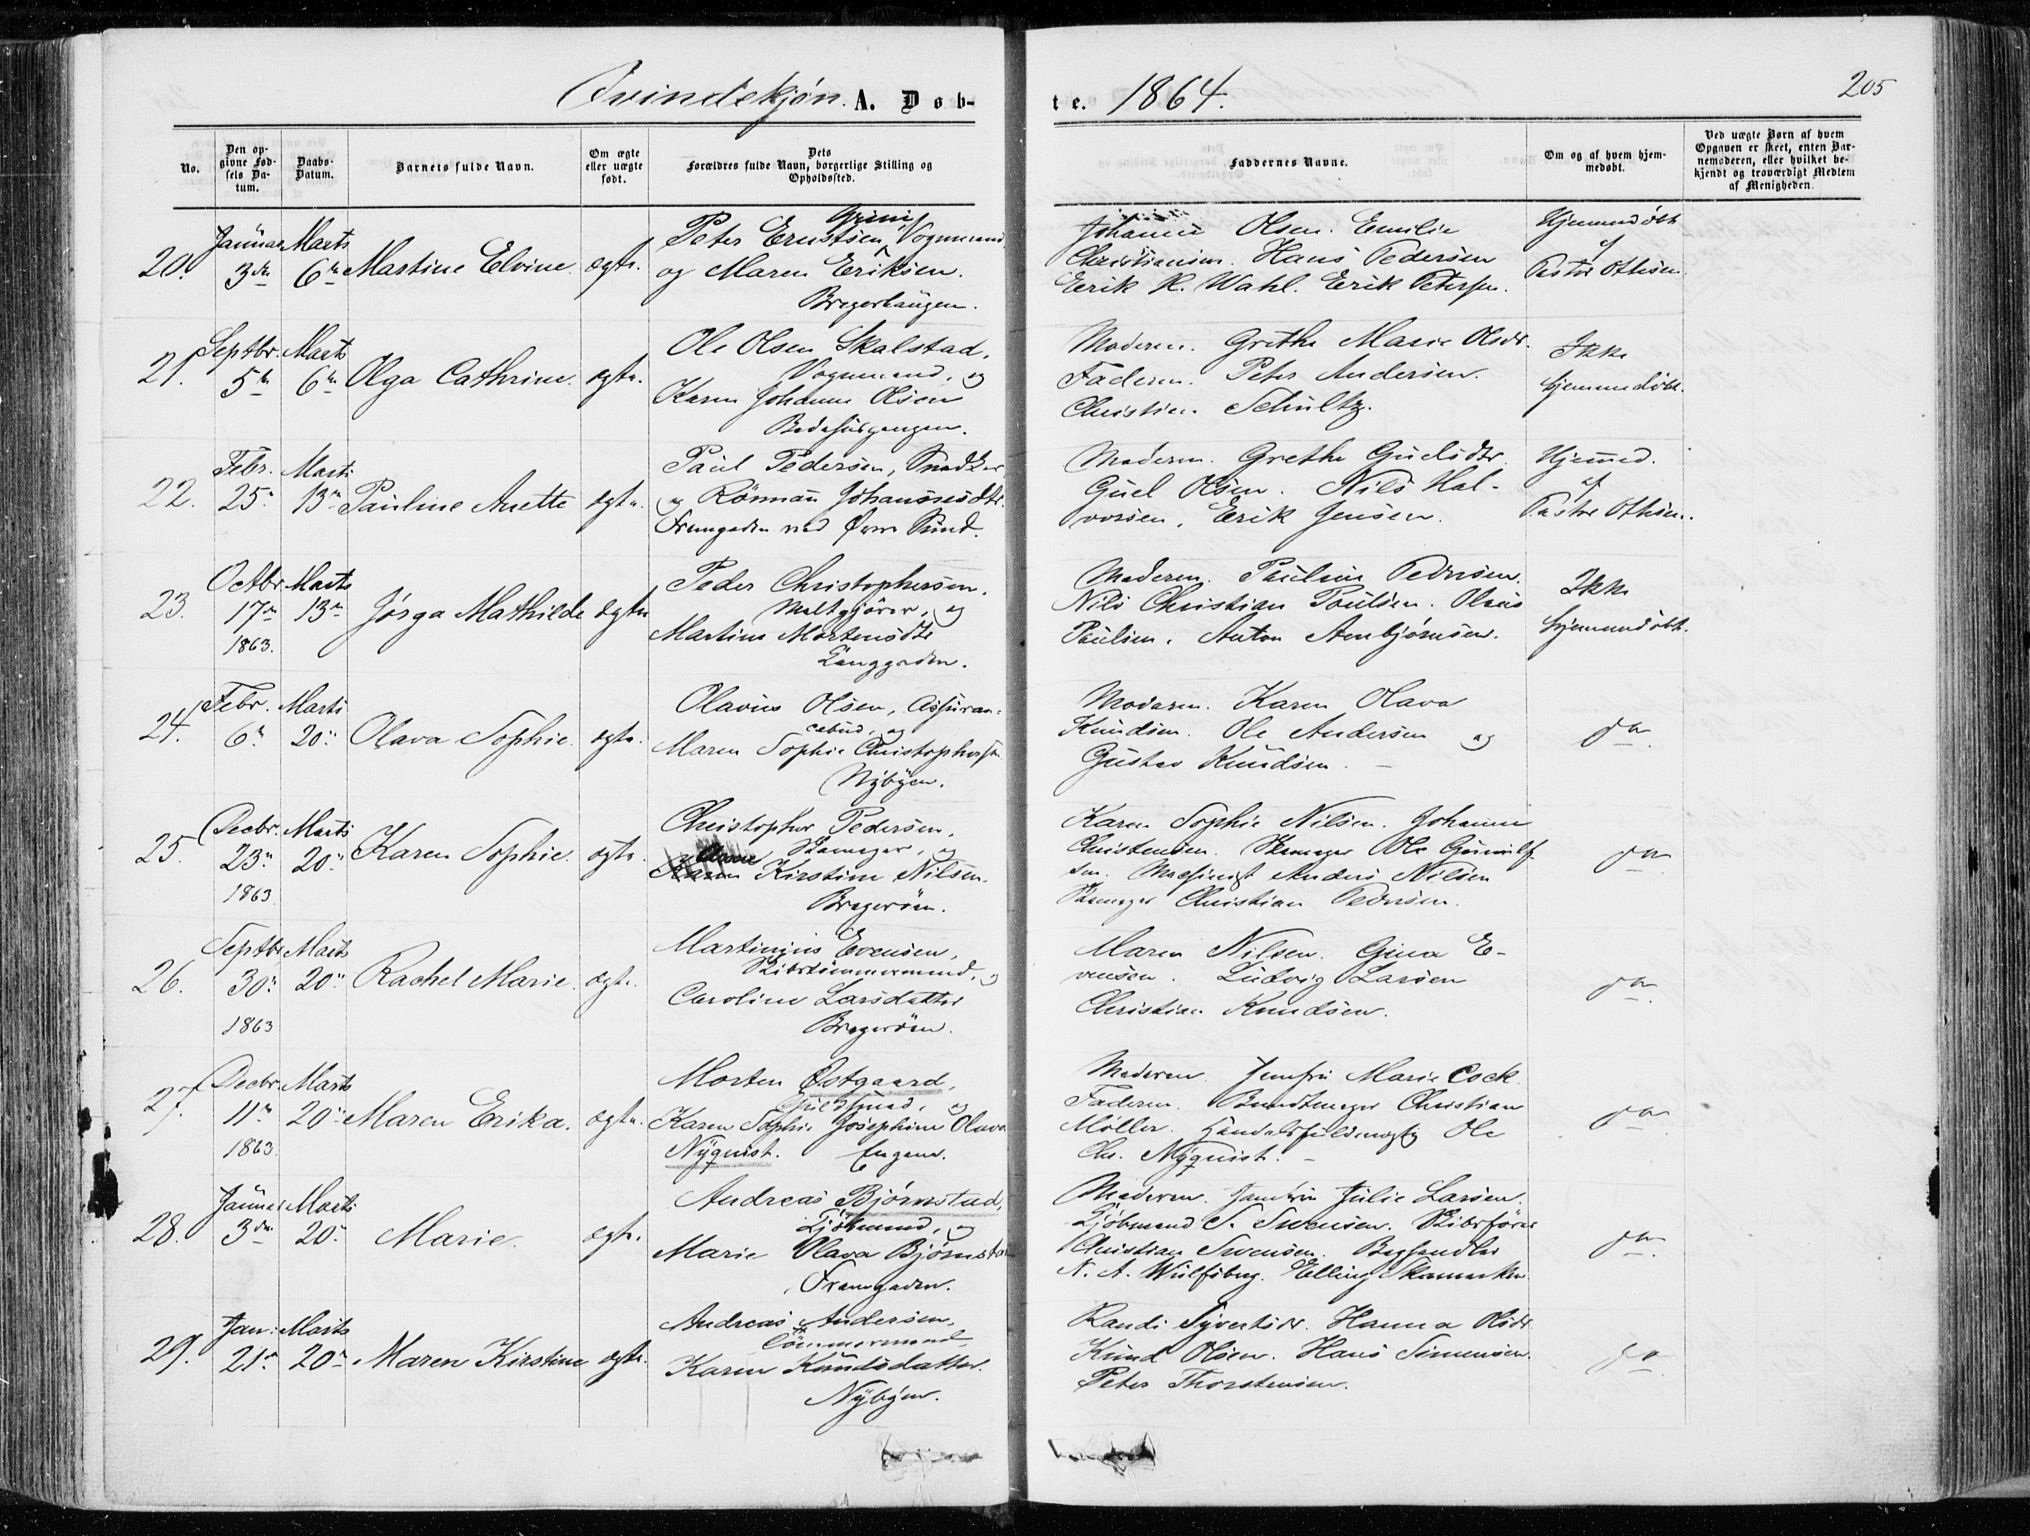 Qvindekjøn. A. Døb-
te. 1864.
205
No.
Den opgivne Fødsels Datum.
Daabs-Datum.
Barnets fulde Navn.
Om ægte eller uægte født.
Dets Forældres fulde Navn, borgerlige Stilling og Opholdssted.
Faddernes Navne.
Om og af hvem hjemmedøbt.
Ved uægte Børn af hvem Opgaven er skeet, enten Barnemoderen, eller hvilket bekjendt og troværdigt Medlem af Menigheden.
20.
Januar 3de
Marts 6te
Martine Elvine.
ægte.
Peter Ernstsen Grini, Vognmand
og Maren Eriksen.
Bragerhaugen.
Johanne Olsen. Emilie
Christiansen. Hans Pedersen
Eerik H. Wahl. Eerik Petersen.
Hjemmedøbt
af
Pastor Othesen.
21.
Septbr. 5te
Marts 6te
Olga Cathrine.
ægte.
Ole Olsen Skalstad,
Vognmand, og
Karen Johanne Olsen
Bedehusgangen.
Moderen. Grethe Marie Olsdr.
Faderen. Peter Andersen.
Christian Schultz.
Ikke
hjemmedøbt.
22.
Febr. 25
Marts 13de
Pauline Anette
ægte.
Paul Pedersen, Snedker
og Rønnau Johannesdtr.
Fremgaden ved Øvre Sund.
Moderen. Grethe Gulsdtr.
Guel Olsen. Nils Hal-
vorsen, Erik Jensen.
Hjemmed.
af
Pastor Othesen.
23.
Octbr. 17de
1863.
Marts 13de
Jørga Mathilde
ægte
Peder Christophersen,
Maltgjører, og
Martine Mortensdtr
Langgaden.
Moderen. Pauline Pedersen.
Nils Christian Poulsen. Olaus
Paulsen. Anton Arnbjørnsen.
Ikke
hjemmedøbt.
24.
Febr. 6te
Marts 20de
Olava Sophie.
ægte.
Olavus Olsen, Assuran-
cebud, og
Maren Sophie Christophersen
Nybyen.
Moderen. Karen Olava
Knudsen. Ole Andersen og
Gustav Knudsen. —
do.
25.
Decbr. 23de
1863
Marts 20de
Karen Sophie.
ægte.
Christopher Pedersen,
Skomager, og
Anne Kirstine Nilsen.
Bragerøen.
Karen Sophie Nilsen. Johanne
Christensen. Skomager Ole Gunulf-
sen. Maskinist Anders Nilsen
Skomager Christian Pedersen.
do.
26.
Septbr. 30
1863
Marts 20de
Rachel Marie.
ægte.
Martinius Evensen,
Skibstømmermand, og
Caroline Larsdatter
Bragerøen.
Maren Nilsen. Gina E-
vensen. Ludvig Larsen
Christian Knudsen.
do.
27.
Decbr. 11te
1863
Marts 20de
Maren Erika.
ægte.
Morten Østgaard,
og
Karen Sophie Josephine Olava
Nyquist. Engene.
Moderen. Jomfru Marie Cock.
Faderen. Bundtmager Christian
Møller. Handelsfuldmægtig Ole
Chr. Nyquist. —
do.
28.
Januar 3de
Marts 20
Marie.
ægte.
Andreas Bjørnstad,
Kjøbmand, og
Marie Olava Bjørnstad
Framgaden.
Moderen. Jomfru Julie Larsen.
Kjøbmand S. Svensen. Skibsfører
Christian Svensen. Boghandler
N. A. Wulfsberg. Elling Skamarken.
do.
29.
Jan: 21de
Marts 20de
Maren Kirstine
ægte.
Andreas Andersen,
Tømmermand,
Karen Knudsdatter.
Nybyen.
Randi Syvertsdr. Hanna Olsdr.
Knud Olsen. Hans Simensen.
Peter Thorstensen.
do.